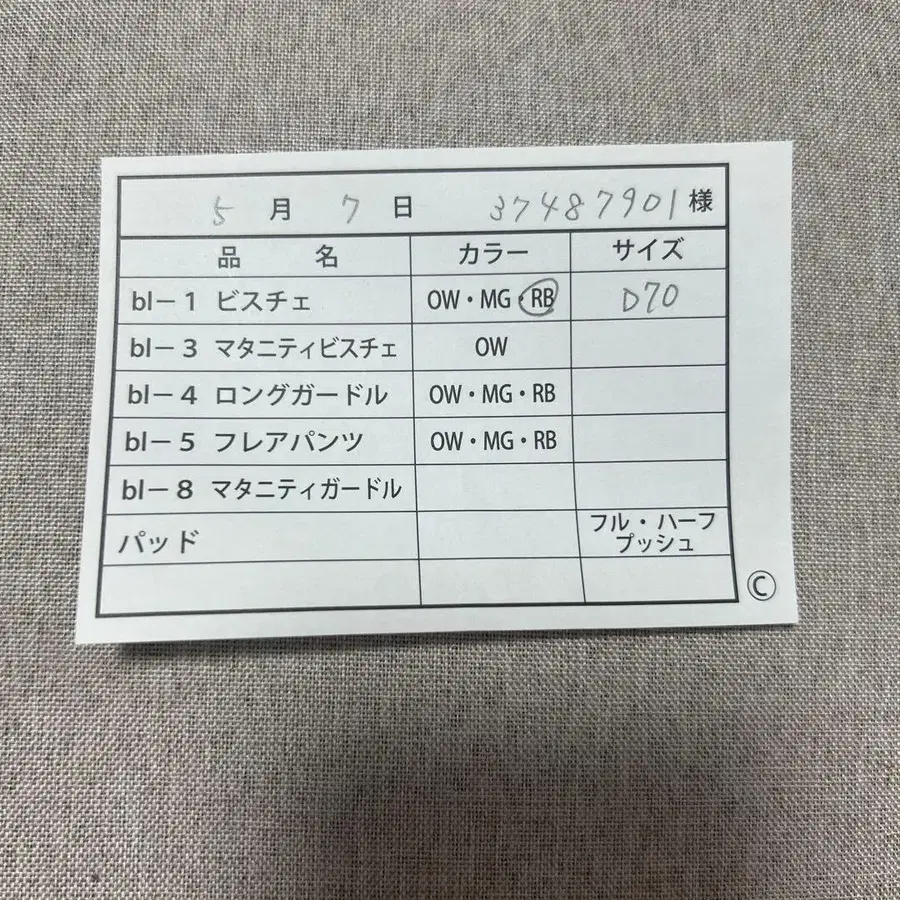 5 月 7 日 37487901 様
品 名 カラー サイズ
bl－1 ビスチェ OW・MG・RB D70
bl－3 マタニティビスチェ OW
bl－4 ロングガードル OW・MG・RB
bl－5 フレアパンツ OW・MG・RB
bl－8 マタニティガードル
パッド フル・ハーフ
プッシュ
Ⓒ